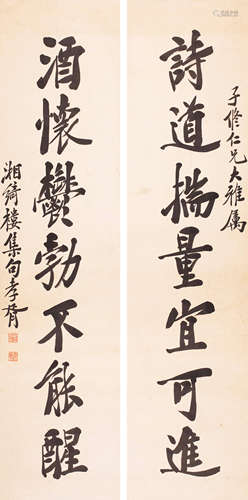 子修仁兄大雅属
詩道揣量宜可進
酒懷鬱勃不能醒
湘綺樓集句孝胥